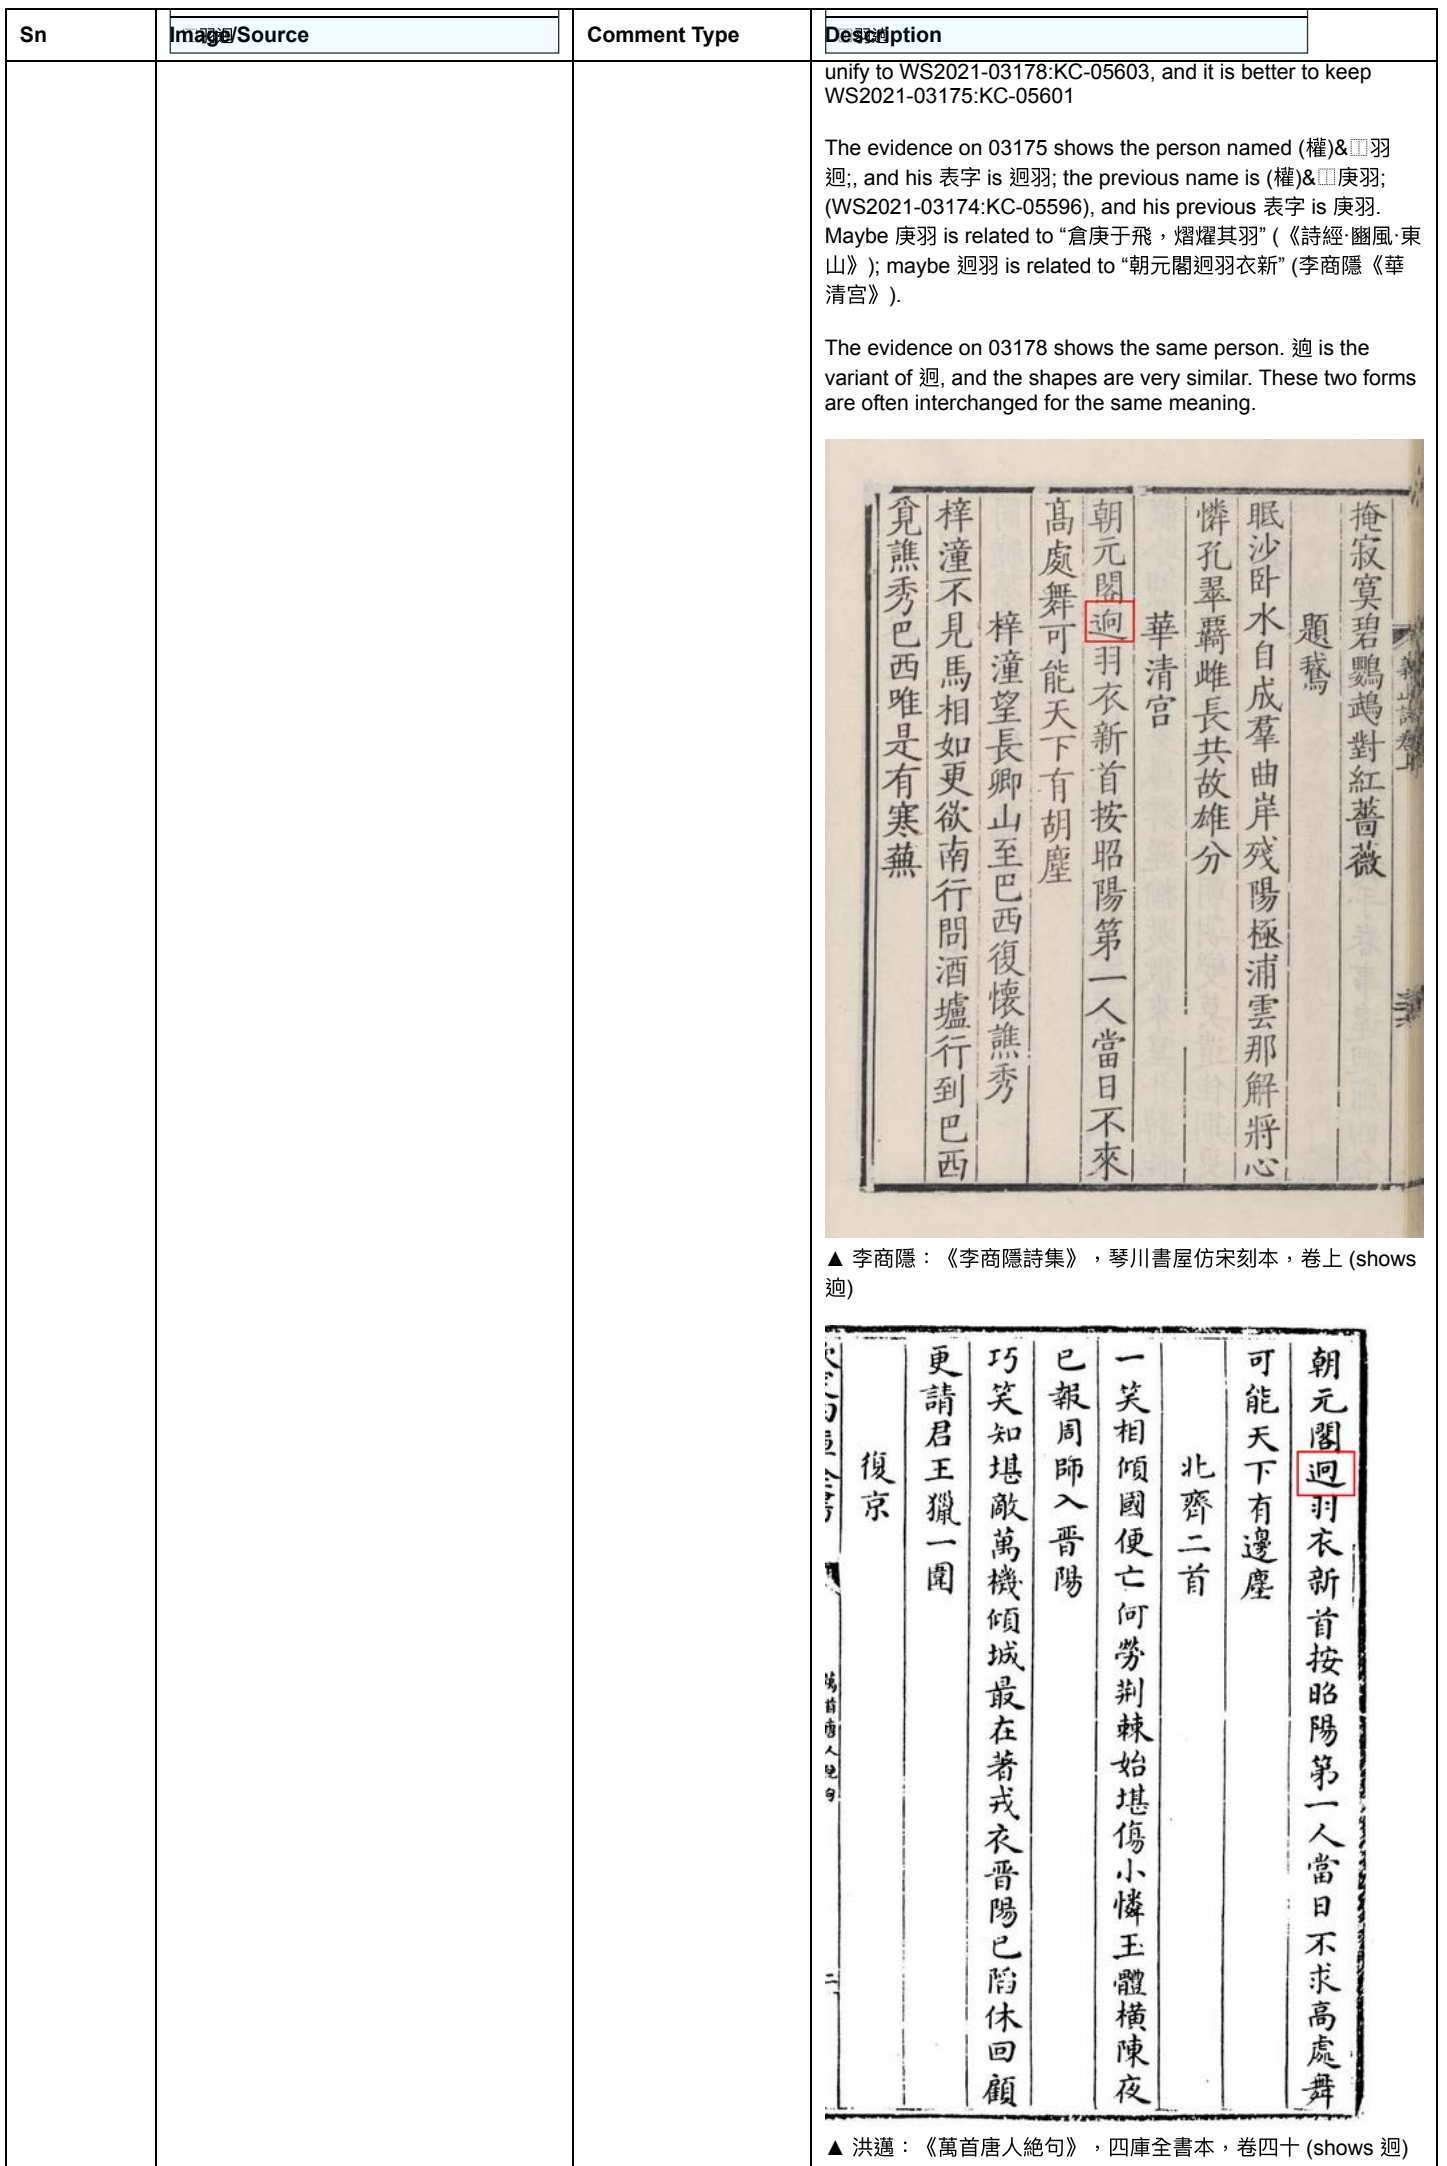 Sn Image/Source Comment Type Description
unify to WS2021-03178:KC-05603, and it is better to keep
WS2021-03175:KC-05601
The evidence on 03175 shows the person named (權)&⿰羽
迥;, and his 表字 is 迥羽; the previous name is (權)&⿰庚羽;
(WS2021-03174:KC-05596), and his previous 表字 is 庚羽.
Maybe 庚羽 is related to “倉庚于飛，熠燿其羽” (《詩經·豳風·東
山》); maybe 迥羽 is related to “朝元閣迥羽衣新” (李商隱《華
清宫》).
The evidence on 03178 shows the same person. 逈 is the
variant of 迥, and the shapes are very similar. These two forms
are often interchanged for the same meaning.
掩寂寞碧鸚鵡對紅薔薇
題鵞
眠沙卧水自成羣曲岸殘陽極浦雲那解將心
憐孔翠羇雌長共故雄分
華清宫
朝元閣逈羽衣新首按昭陽第一人當日不來
髙處舞可能天下有胡塵
梓潼望長卿山至巴西復懷譙秀
梓潼不見馬相如更欲南行問酒壚行到巴西
覓譙秀巴西唯是有寒蕪
▲ 李商隱：《李商隱詩集》，琴川書屋仿宋刻本，卷上 (shows
逈)
朝元閣迥羽衣新首按昭陽第一人當日不求高處舞
可能天下有邊塵
北齊二首
一笑相傾國便亡何勞荆棘始堪傷小憐玉體橫陳夜
已報周師入晋陽
巧笑知堪敵萬機傾城最在著戎衣晋陽已陷休回顧
更請君王獵一圍
復京
萬首唐人絶句
二
▲ 洪邁：《萬首唐人絶句》，四庫全書本，卷四十 (shows 迥)